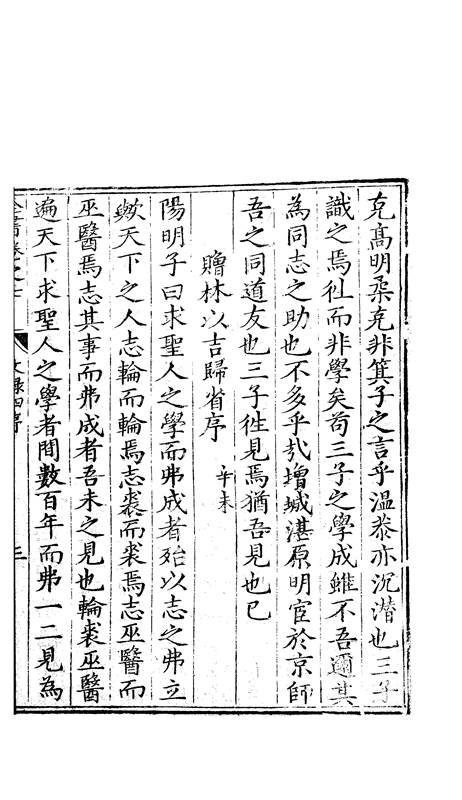 克髙明柔克非箕子之言乎温恭亦沉潛也三子
識之焉徃而非學矣苟三子之學成雖不吾邇其
為同志之助也不多乎哉增城湛原明宦於京師
吾之同道友也三子徃見焉猶吾見也已
贈林以吉歸省序 辛未
陽明子曰求聖人之學而弗成者殆以志之弗立
歟天下之人志輪而輪焉志裘而裘焉志巫醫而
巫醫焉志其事而弗成者吾未之見也輪裘巫醫
遍天下求聖人之學者間數百年而弗一二見為
全書卷之七 文錄四序 三